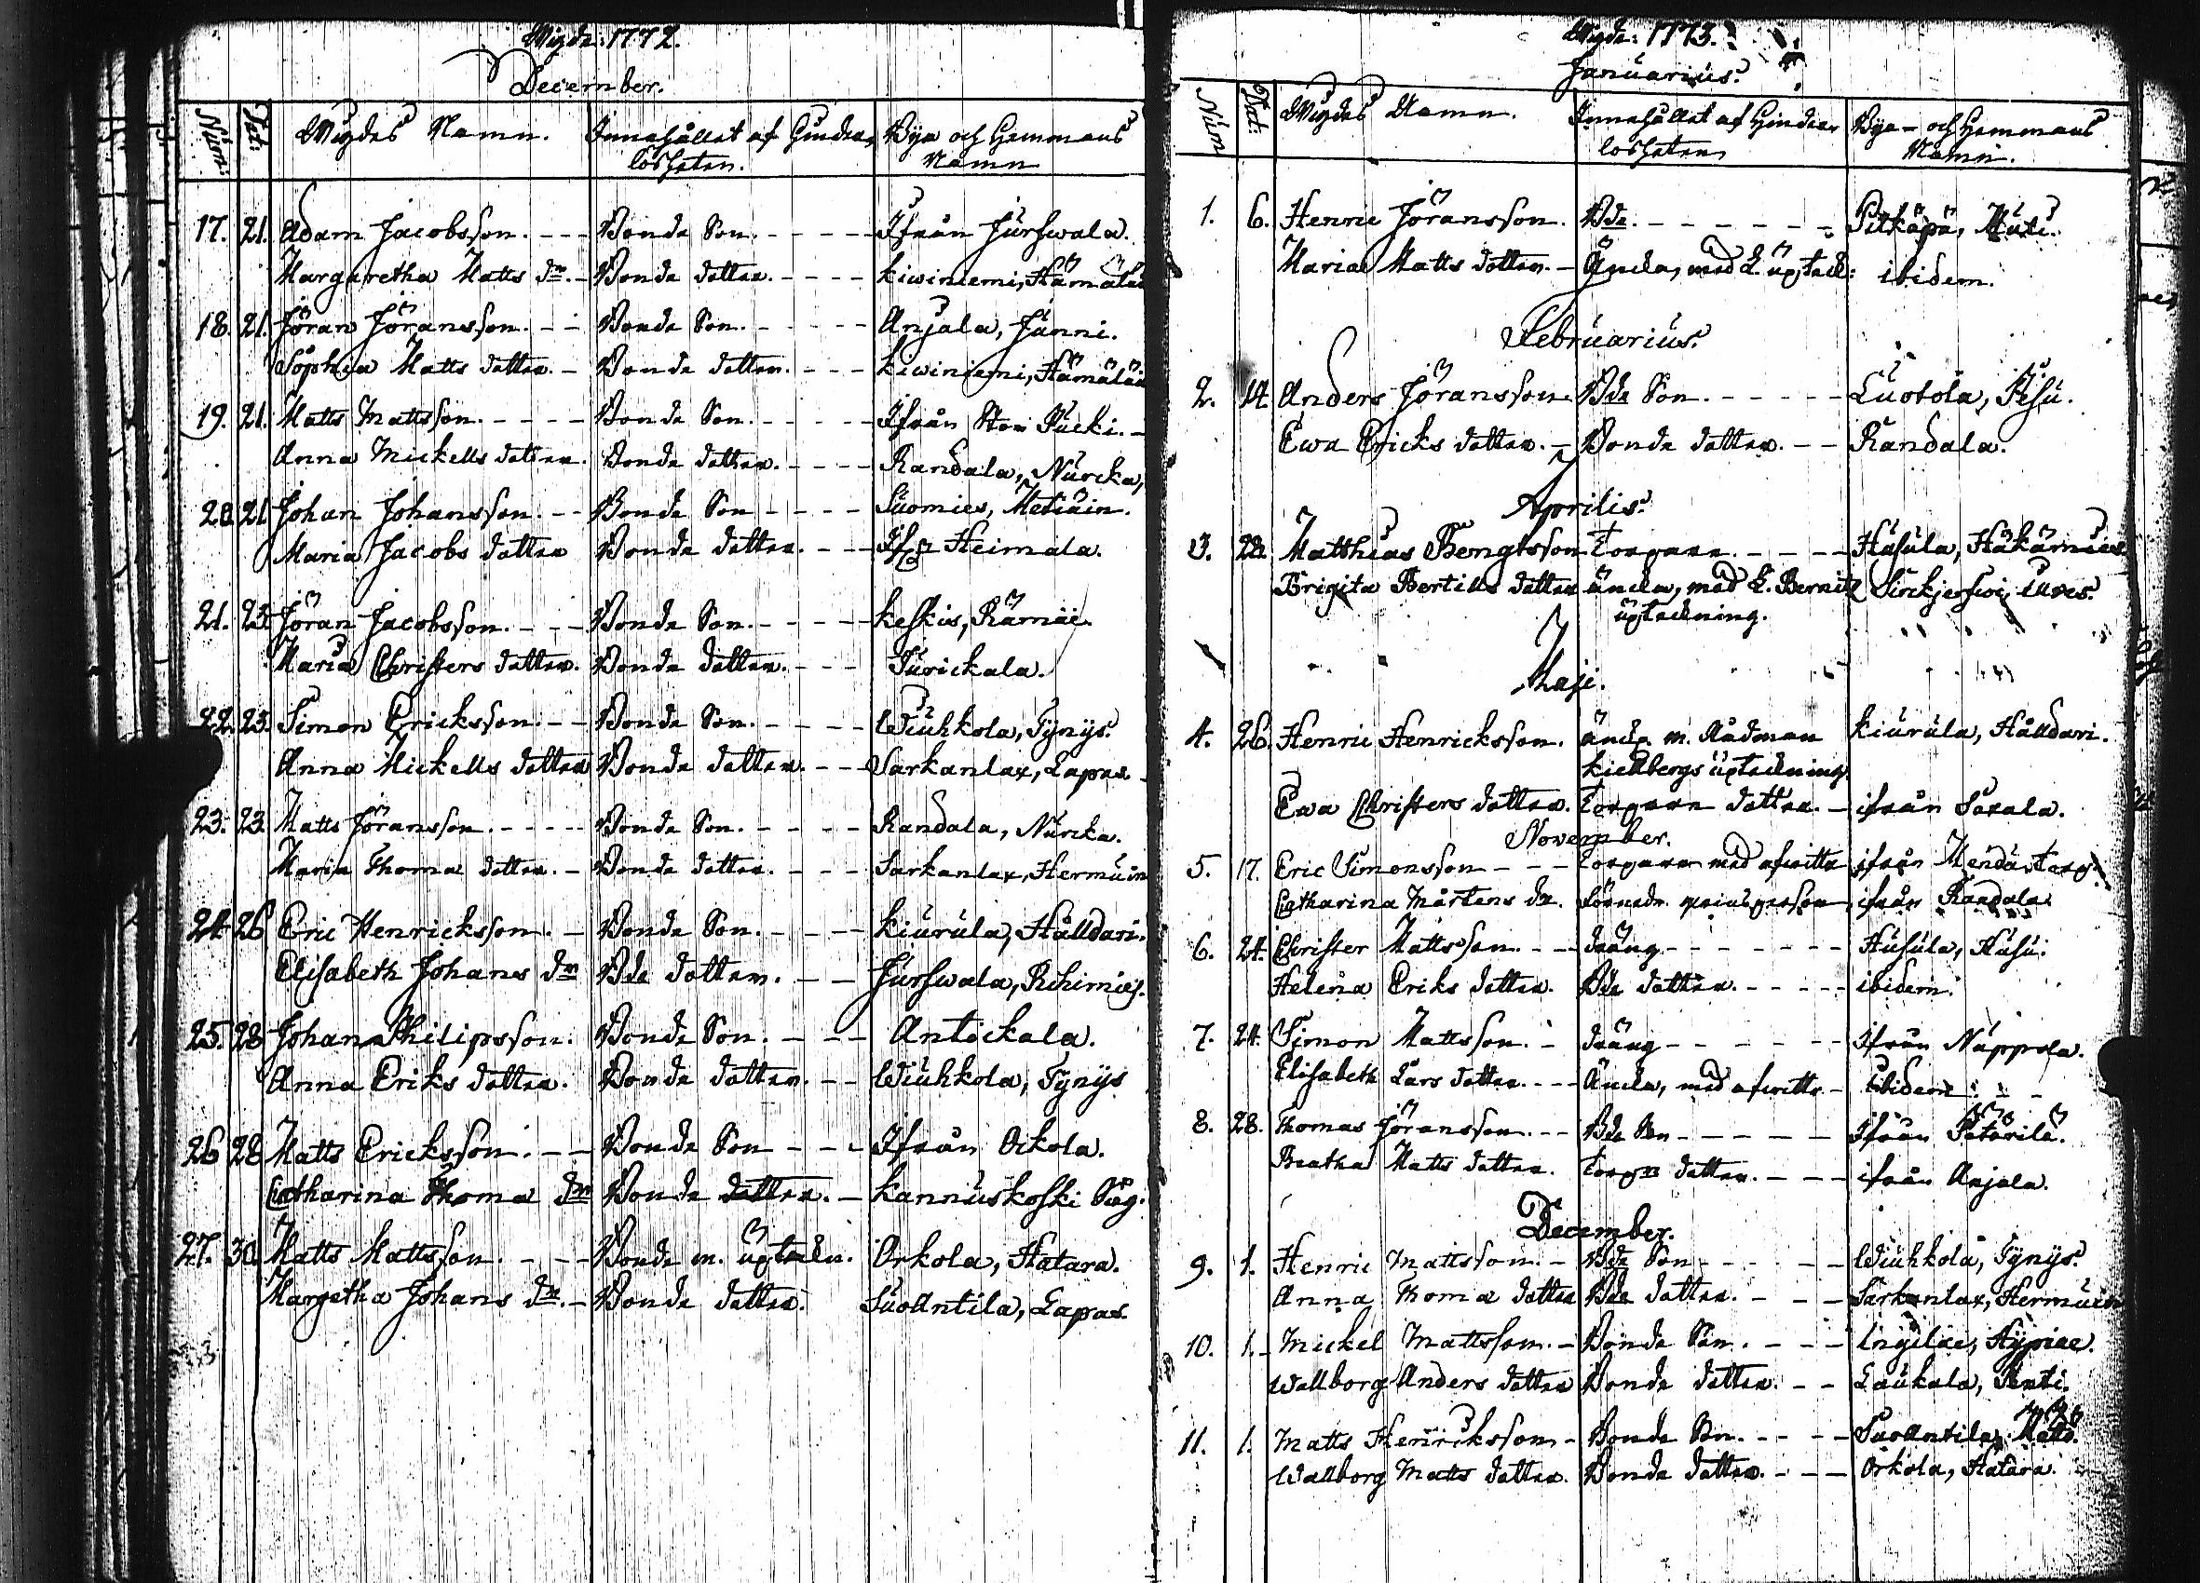 Wigde: 1772.
December.
Num: Dat: Wigdes Namn. Innehållet af Hinders Bya och Hemmans
lösheten. Namn
17. 21. Adam Jacobsson. Bonde Son. Ifrån Jurfwala.
Margaretha Matts dr. Bonde dotter. Kiwiniemi, Hämäläi
18. 21. Jöran Jöransson. Bonde Son. Anjala, Junni.
Sophia Matts dotter. Bonde dotter. Kiwiniemi, Hämäläi
19. 21. Matts Mattsson. Bonde Son. Ifrån Stor Pucki.
Anna Mickells dotter. Bonde dotter. Randala, Nurcka,
20. 21. Johan Johansson. Bonde Son Suomies,
Maria Jacobs dotter Bonde dotter. Heimala.
21. 23. Jöran Jacobsson. Bonde Son. Keskis, Rämäi.
Maria Christers dotter. Bonde dotter. Purickala.
22. 23. Simon Ericksson. Bonde Son. Wiuhkola, Tynys.
Anna Mickells dotter Bonde dotter. Sarkanlax, Lapas
23. 23. Matts Jöransson. Bonde Son. Randala, Nurcka.
Maria Thoma dotter. Bonde dotter. Sarkanlax, Hermuin
24. 26 Eric Henricksson. Bonde Son. Kiurula, Hälldari.
Elisabeth Johans dr Bde dotter. Jurfwala, Rihimies.
25. 28 Johan Philipsson. Bonde Son. Antickala.
Anna Eriks dotter. Bonde dotter. Wiuhkola, Tynys
26 28 Matts Ericksson. Bonde Son Ifrån Orkola.
Catharina Thoma dr Bonde dotter. Kannuskoski Säg.
27. 30. Matts Mattsson. Bonde m. uptekn. Orkola, Hatara.
Margetha Johans dr. Bonde dotter. Suoantila, Lapas
Wigde: 1773.
Januarius.
Num Dat: Wigdes Namn. Innehållet af Hinders Bya- och Hemmans
lösheten Namn.
1. 6. Henric Jöransson. Bde. Pitkäpä, Muti.
Maria Matts dotter. Äncka, med L. uptekn: ibidem.
Februarius.
2. 14 Anders Jöransson. Bde Son. Luotola, Pesu.
Ewa Ericks dotter. Bonde dotter. Randala.
Aprilis.
3. 22. Matthias Bengtsson Torpare. Husula, Hakämies
Brigita Bertills dotter äncka, med L. Bernitz
upteckning.
Maji.
4. 26. Henric Henricksson. änckl. m. Rådman Kiurula, Hälldari.
Kiellbergs upteckning.
Ewa Christers dotter. Torpare dotter. ifrån Saxala.
November.
5. 17. Eric Simonsson Torpare med afwitt. ifrån
Catharina Mårtens dr. ifrån Randala.
6. 24. Christer Mattsson. dräng. Husula, Husu.
Helena Eriks dotter. Bde dotter. ibidem.
7. 24. Simon Mattsson. dräng Ifrån Näppola.
Elisabeth Lars dotter. Äncka, med afwitt. ibidem
8. 28. Thomas Jöransson. Bde Son Ifrån Pätärilä.
Beatha Matts dotter. Torpre dotter. ifrån Anjala.
December.
9. 1. Henric Mattsson. Bde Son Wiuhkola, Tynys.
Anna Thoma dotter Bde dotter. Sarkanlax, Hermuin
10. 1. Mickel Mattsson. Bonde Son. Ingilae, Hypiae.
Wallborg Anders dotter Bonde dotter. Laukala, Penti.
11. 1. Matts Henricksson Bonde Son. Suoantila,
Wallborg Matts dotter. Bonde dotter. Orkola, Hatara.